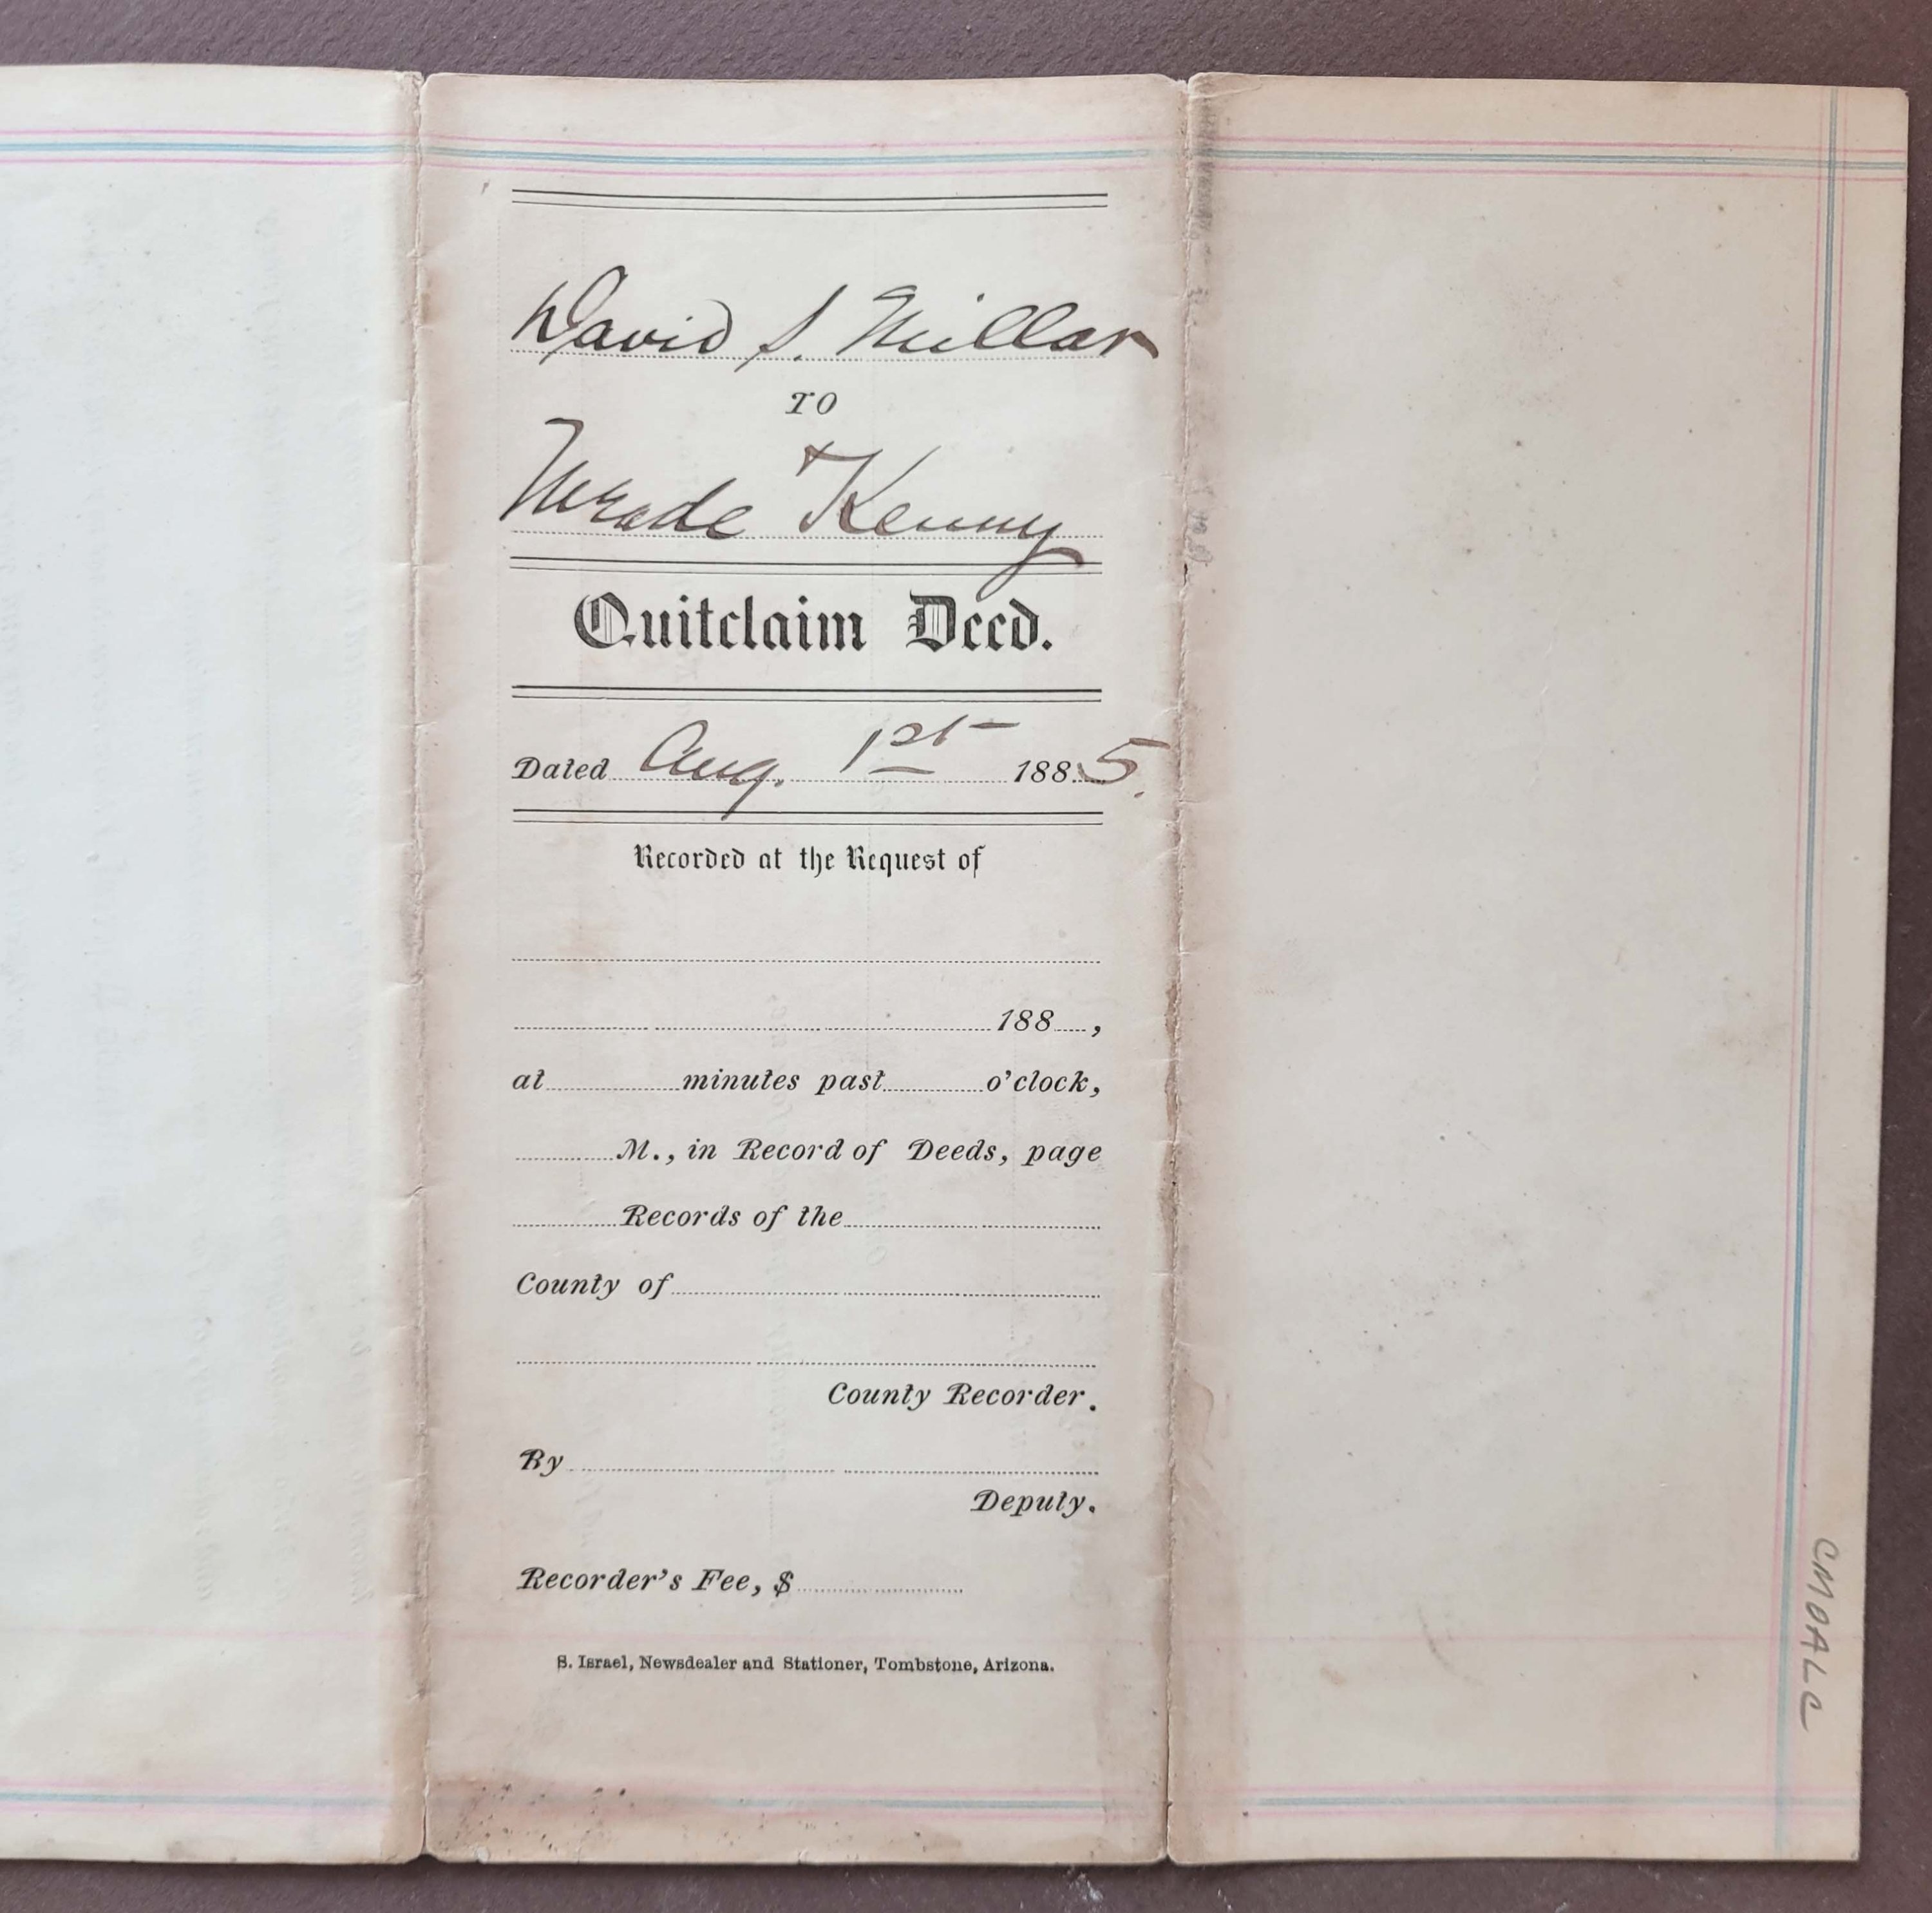 David S. Millar
TO
Meade Kenny
Quitclaim Deed.
Dated Aug. 1st 1885.
Recorded at the Request of
188 ,
at minutes past o'clock,
M., in Record of Deeds, page
Records of the
County of
County Recorder.
By
Deputy.
Recorder's Fee, $
S. Israel, Newsdealer and Stationer, Tombstone, Arizona.
CMOALC